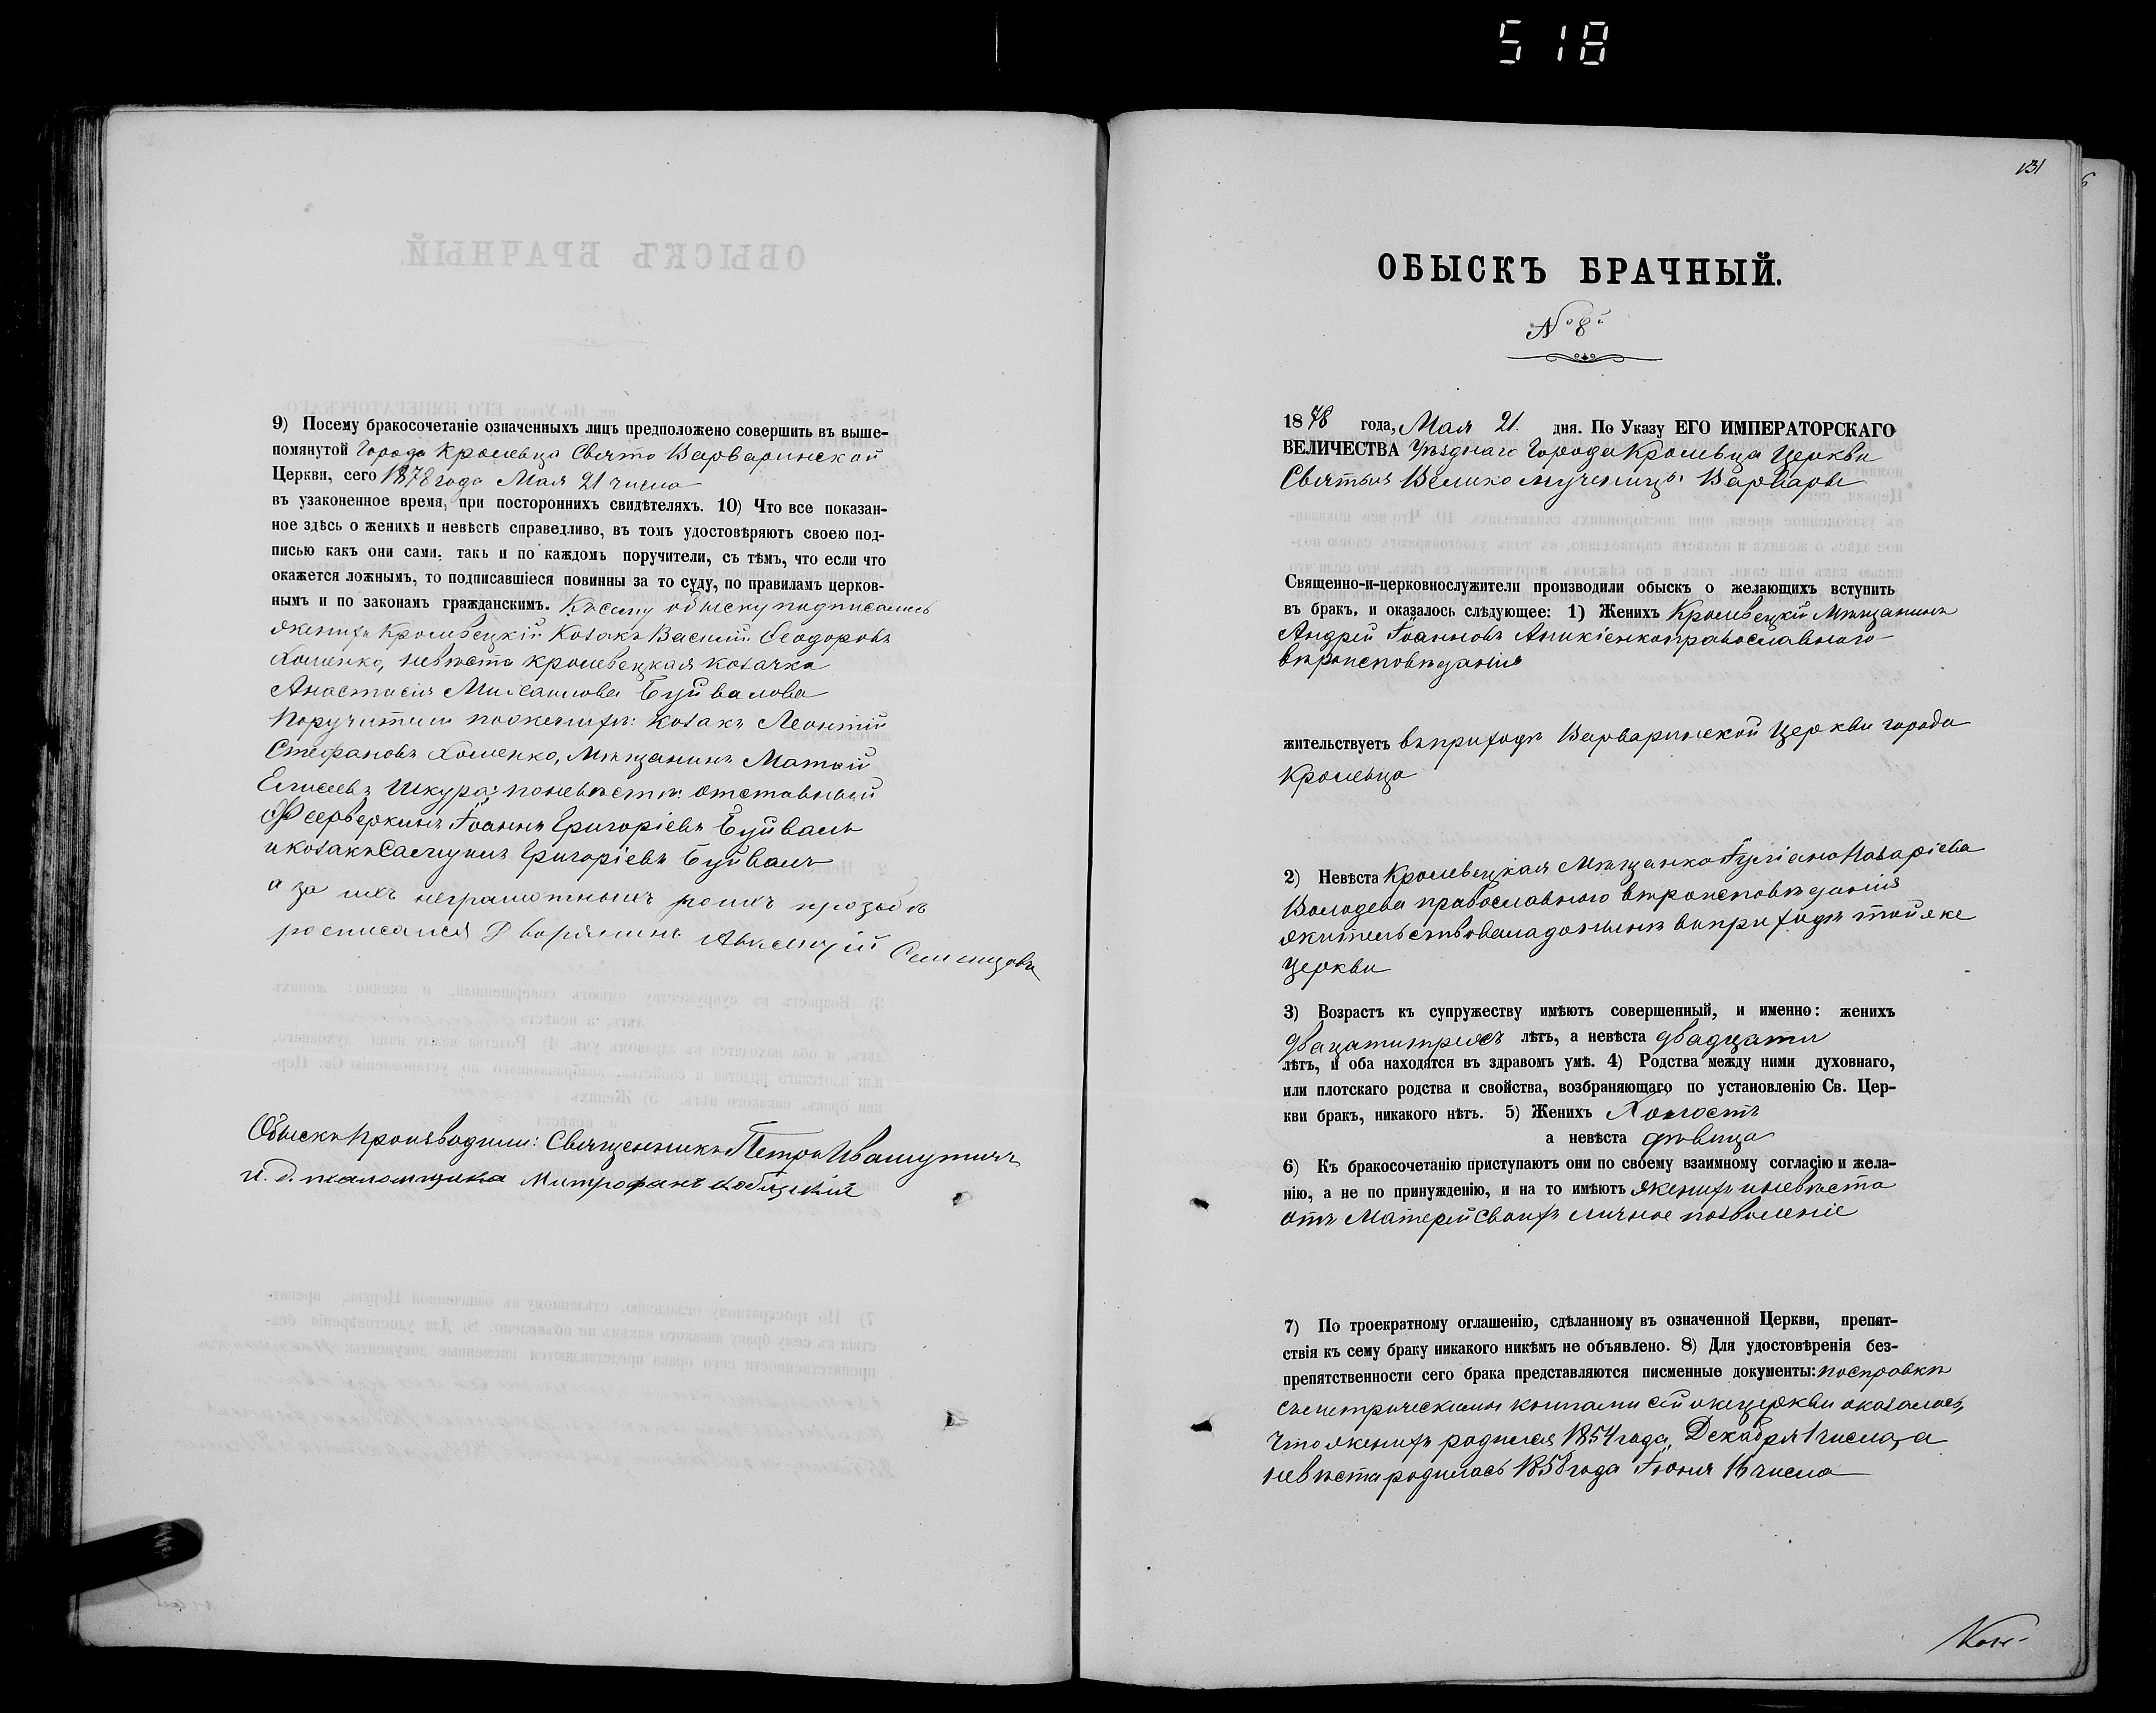 518
9) Посему бракосочетаніе означенныхъ лицъ предположено совершить въ выше-
помянутой Города Кролевца Свято Варваринской
Церкви, сего 1878 года Мая 21 числа
въ узаконенное время, при постороннихъ свидѣтеляхъ. 10) Что все показан-
ное здѣсь о женихѣ и невѣстѣ справедливо, въ томъ удостовѣряютъ своею под-
писью какъ они сами, такъ и по каждомъ поручители, съ тѣмъ, что если что
окажется ложнымъ, то подписавшіеся повинны за то суду, по правиламъ церков-
нымъ и по законамъ гражданскимъ. Къ сему обыску подписались
женихъ Кролевецкій Козакъ Василій Ѳеодоровъ
Хоменко, невѣста кролевецкая козачка
Анастасія Михаилова Буйвалова
Поручители по женихѣ: козакъ Леонтій
Стефановъ Хоменко, Мѣщанинъ Матѳій
Елисеевъ Шкура; по невѣстѣ: отставный
Феерверкинъ Іоаннъ Григоріевъ Буйвалъ
и козакъ Самуилъ Григоріевъ Буйвалъ
а за ихъ неграмотныхъ по ихъ прозьбѣ
росписался Дворянинъ
Обыскъ производили: Священникъ Петръ Ивашутичъ
и. д. псаломщика Митрофанъ
131
ОБЫСКЪ БРАЧНЫЙ.
№ 8й
1878 года, Мая 21. дня. По Указу ЕГО ИМПЕРАТОРСКАГО
ВЕЛИЧЕСТВА Уѣзднаго Города Кролевца Церкви
Святыя Великомученицы Варвары
Священно-и-церковнослужители производили обыскъ о желающихъ вступить
въ бракъ, и оказалось слѣдующее: 1) Женихъ Кролевецкій Мѣщанинъ
Андрей Іоанновъ Аникіенко православного
вѣроисповѣданія
жительствуетъ въ приходѣ Варваринской Церкви города
Кролевца
2) Невѣста Кролевецкая Мѣщанка Іуліана Назаріева
Володева православного вѣроисповѣданія
жительствовала донынѣ въ приходѣ той же
Церкви
3) Возрастъ къ супружеству имѣютъ совершенный, и именно: женихъ
двацати трехъ лѣтъ, а невѣста двадцати
лѣтъ, и оба находятся въ здравомъ умѣ. 4) Родства между ними духовнаго,
или плотскаго родства и свойства, возбраняющаго по установленію Св. Цер-
кви бракъ, никакого нѣтъ. 5) Женихъ Холостъ
а невѣста дѣвица
6) Къ бракосочетанію приступаютъ они по своему взаимному согласію и жела-
нію, а не по принужденію, и на то имѣютъ женихъ и невѣста
отъ Матерей своихъ личное позволеніе
7) По троекратному оглашенію, сдѣланному въ означенной Церкви, препят-
ствія къ сему браку никакого никѣмъ не объявлено. 8) Для удостовѣренія без-
препятственности сего брака представляются писменные документы: по справкѣ
съ метрическими книгами сей же церкви оказалось,
что женихъ родился 1854 года, Декабря 1 числа, а
невѣста родилась 1858 года Іюня 16 числа